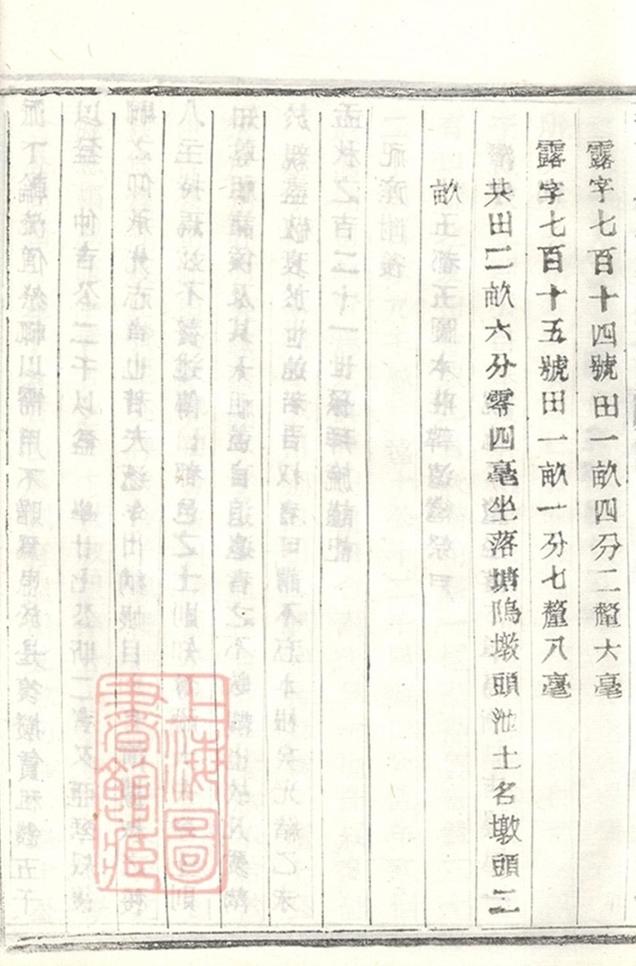 露字七百十四號田一畝四分二釐六毫
露字七百十五號田一畝一分七釐八毫
共田二畝六分零四毫坐落塘隖墩頭池土名墩頭二
畝
上海圖
書館藏